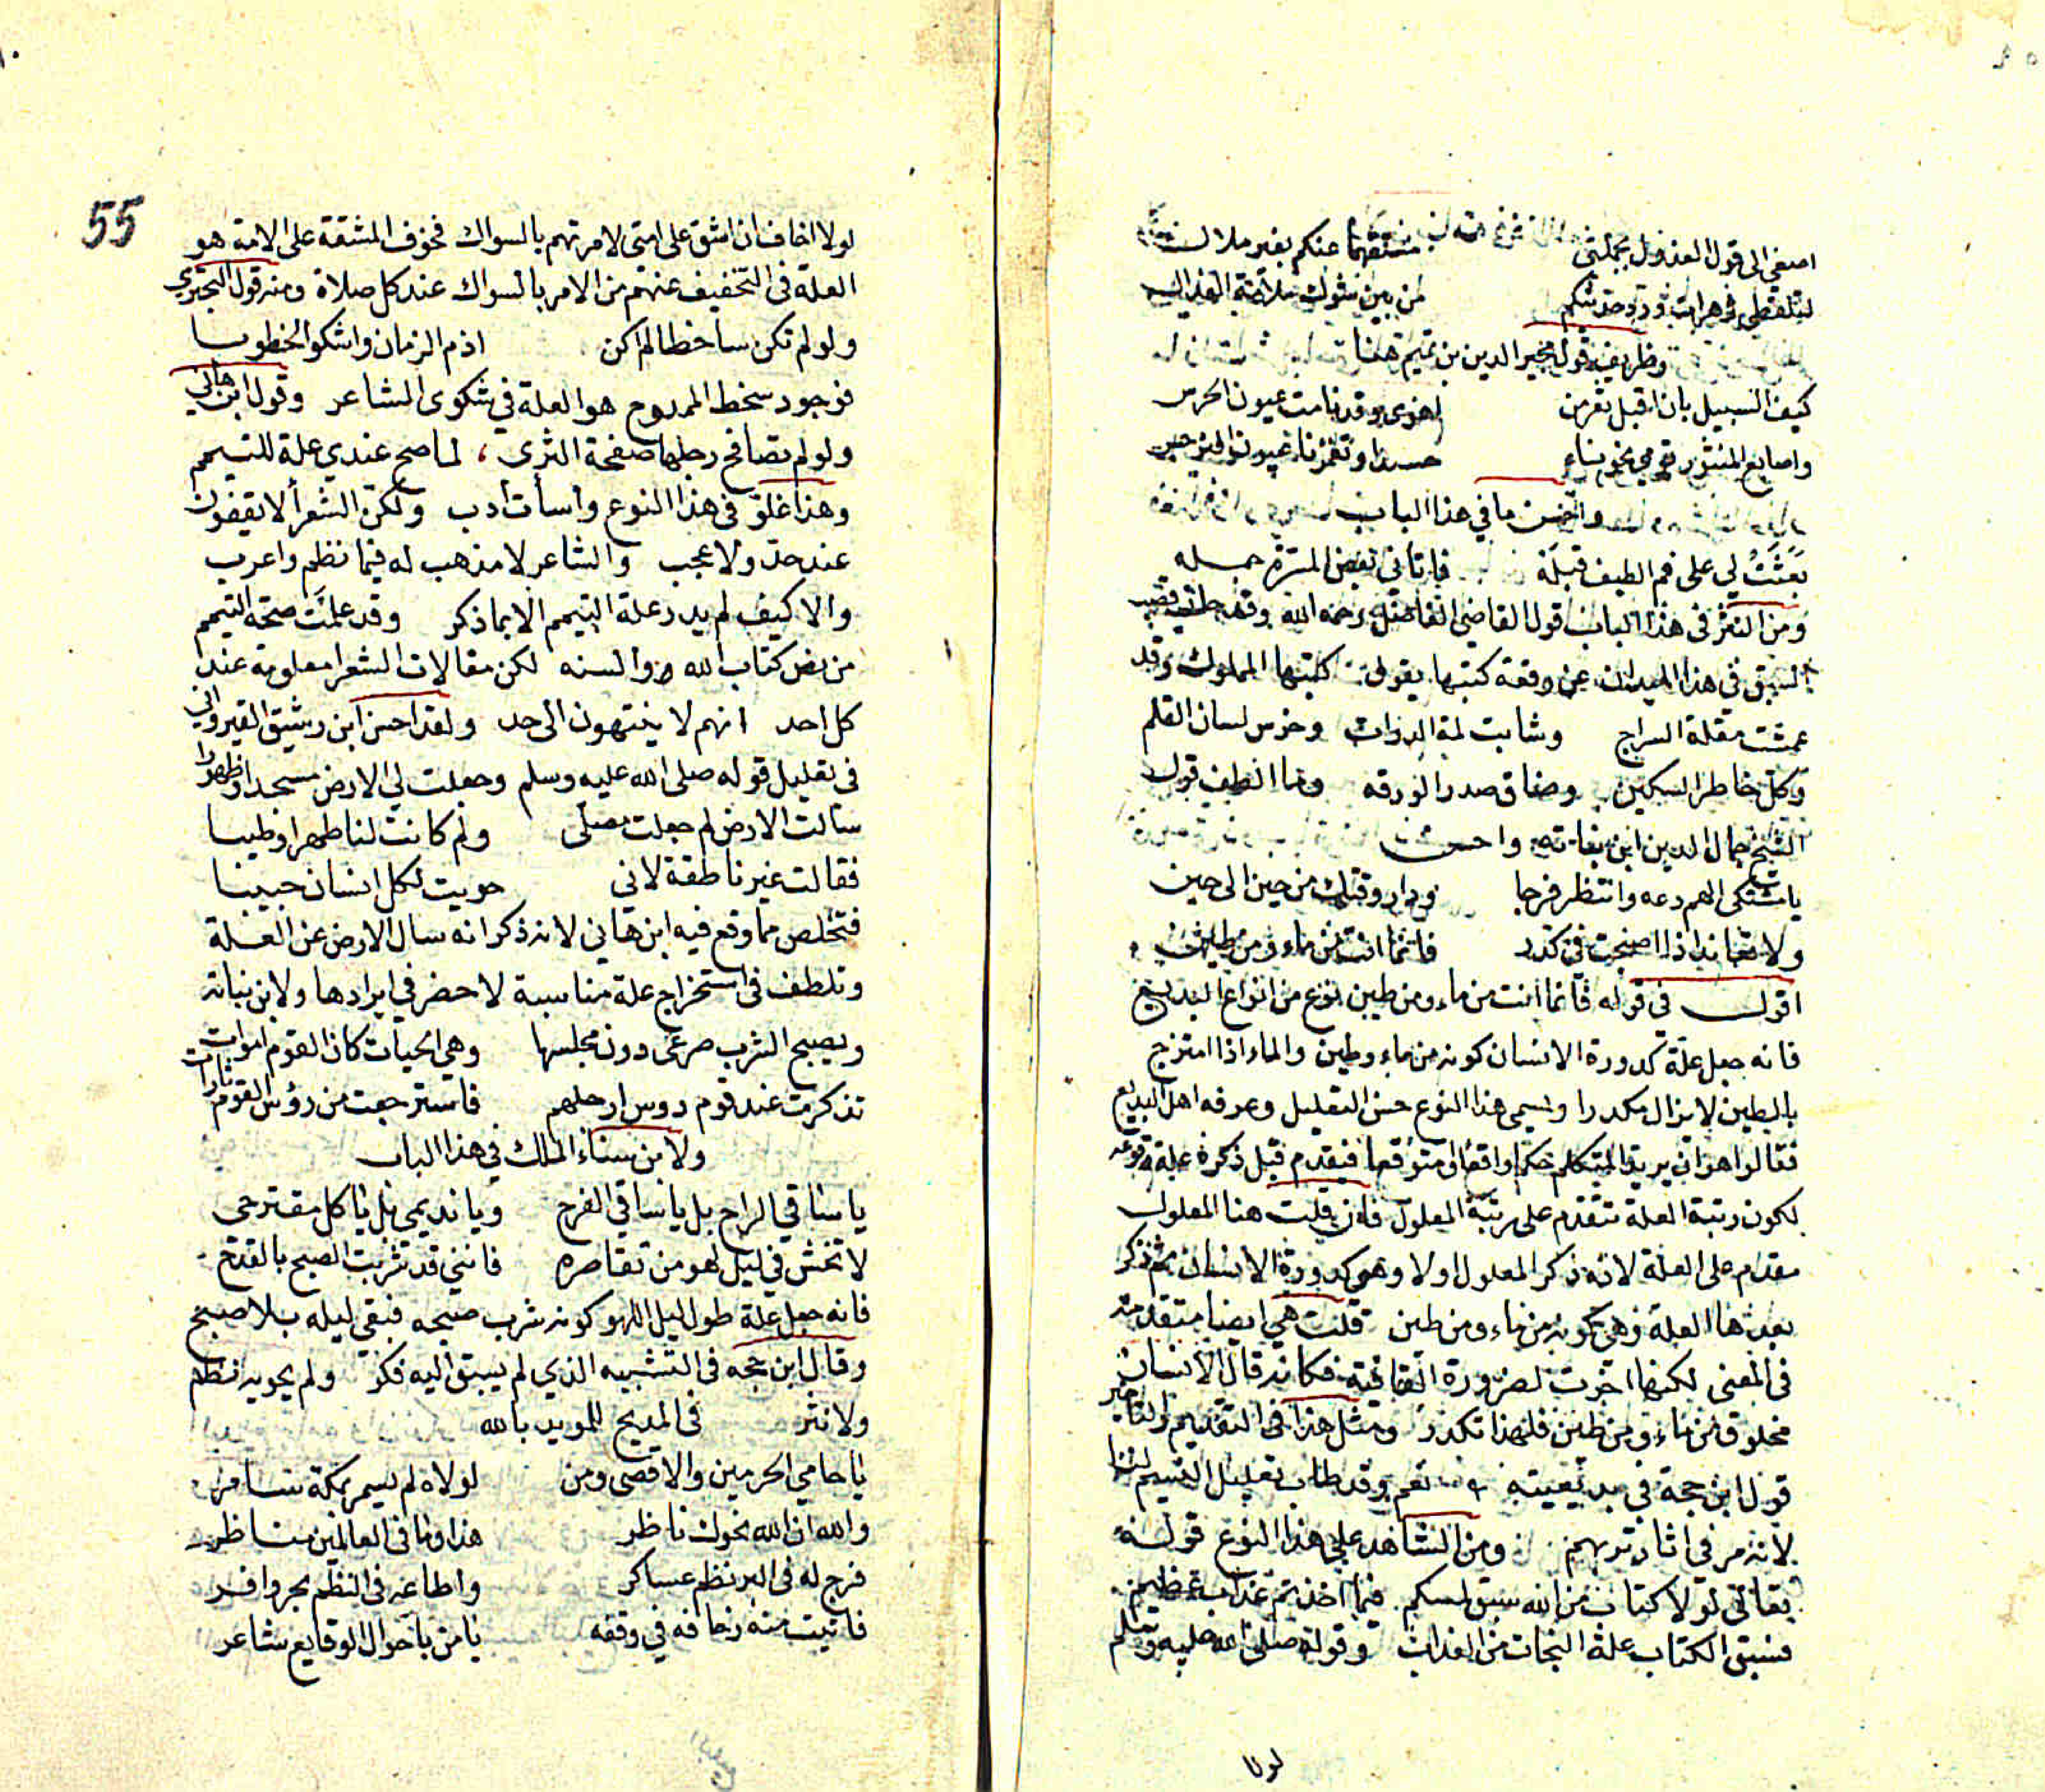 اصغي الى قول العذول بجملتي مستفهما عنكم بغير ملال
لتلقطي زهرات ورد حديثكم من بين شوك ملامة العذال
وظريف قول مجير الدين بن تميم هنا
كيف السبيل بان اقبل ثغر من اهوى وقد نامت عيون الحرس
واصابع المنثور تومي نحونا حسدا وتغمزنا عيون النرجس
واحسن ما في هذا الباب
بَعَثَتْ لي على فم الطيف قبلَة فاتاني بعض المسرّة جمله
ومن النثر في هذا الباب قول القاضي الفاضل رحمه الله وقد حاز قصب
السبق في هذا الميدان عن رقعة كتبها يقول كتبها المملوك وقد
عمشت مقلة السراج وشابت لمة الدواة وخرس لسان القلم
وكلّ خاطر السكين وضاق صدر الورقه وما الطف قول
الشيخ جمال الدين ابن نباته واحسن
يا مشتكي الهم دعه وانتظر فرجا ودار وقتك من حين الى حين
ولا تعاند اذا اصبحت في كدر فانما انت من ماء ومن طين
اقول في قوله فانما انت من ماء ومن طين نوع من انواع البديع
فانه جعل علة كدورة الانسان كونه من ماء وطين والماء اذا امتزج
بالطين لا يزال مكدرا ويسمى هذا النوع حسن التعليل وعرفه اهل البديع
فقالوا هو ان يريد المتكلم حكما واقعا او متوقعا فيقدم قبل ذكره علة وقوعه
لكون رتبة العلة تتقدم على رتبة المعلول فان قلت هنا المعلول
مقدم على العلة لانه ذكر المعلول اولا وهو كدورة الانسان ثم ذكر
بعدها العلة وهي كونه من ماء ومن طين قلت هي ايضا متقدمة
في المعنى لكنها اخرت لضرورة القافية فكانه قال الانسان
مخلوق من ماء ومن طين فلهذا تكدر ومثل هذا في التقديم والتاخير
قول ابن حجة في بديعيته نعم وقد طاب تعليل النسيم لنا
لانه مر في اثار تربهم ومن الشاهد على هذا النوع قوله
تعالى لولا كتاب من الله سبق لمسكم فيما اخذتم عذاب عظيم
فسبق الكتاب علة النجات من العذاب وقوله صلى الله عليه وسلم
لولا
55
لولا اخاف ان اشق على امتي لامرتهم بالسواك فخوف المشقة على الامة هو
العلة في التخفيف عنهم من الامر بالسواك عند كل صلاة ومنه قول البحتري
ولو لم تكن ساخطا لم اكن اذم الزمان واشكو الخطوبا
فوجود سخط الممدوح هو العلة في شكوى الشاعر وقول ابن هاني
ولو لم تصافح رجلها صفحة الثرى لما صح عندي علة للتيمم
وهذا غلو في هذا النوع واسأت أدب ولكن الشعرا لا يقفون
عند حد ولا عجب والشاعر لا مذهب له فيما نظم واعرب
والا كيف لم يدر علة التيمم الا بما ذكر وقد علمت صحة التيمم
من نص كتاب الله والسنه لكن مقالات الشعرا معلومة عند
كل احد انهم لا ينتهون الى حد ولقد احسن ابن رشيق القيرواني
في تعليل قوله صلى الله عليه وسلم وجعلت لي الارض مسجدا وطهورا
سالت الارض لم جعلت مصلى ولم كانت لنا طهرا وطيبا
فقالت غير ناطقة لاني حويت لكل انسان حبيبا
فتخلص مما وقع فيه ابن هاني لانه ذكر انه سال الارض عن العلة
وتلطف في استخراج علة مناسبة لا حضر في ايرادها ولابن نباته
ويصبح الشرب صرعى دون مجلسها وهي الحيات كان القوم اموات
تذكرت عند قوم دوس ارجلهم فاسترجعت من رؤس القوم ثارات
ولابن سناء الملك في هذا الباب
يا ساقي الراح بل يا ساقي الفرح ويا نديمي بل يا كل مقترحى
لا تخش في ليل لهو من تقاصره فانني قد شربت الصبح بالقدح
فانه جعل علة طول ليل اللهو كونه شرب صبحه فبقي ليله بلا صبح
وقال ابن حجه في التشبيه الذي لم يسبق اليه فكر ولم يحويه نظم
ولا نثر في المديح للمويد بالله
يا حامي الحرمين والاقصى ومن لولاه لم يسمر بمكة سامر
والله ان الله نحوك ناظر هذا وما في العالمين مناظر
فرج له في البر نظم عساكر واطاعه في النظم بحر وافر
فانبت منه زحافه في وقفه يا من باحوال الوقايع شاعر